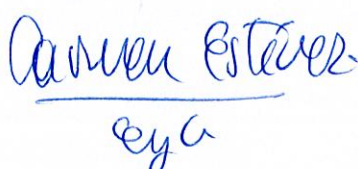 Carmen Estévez